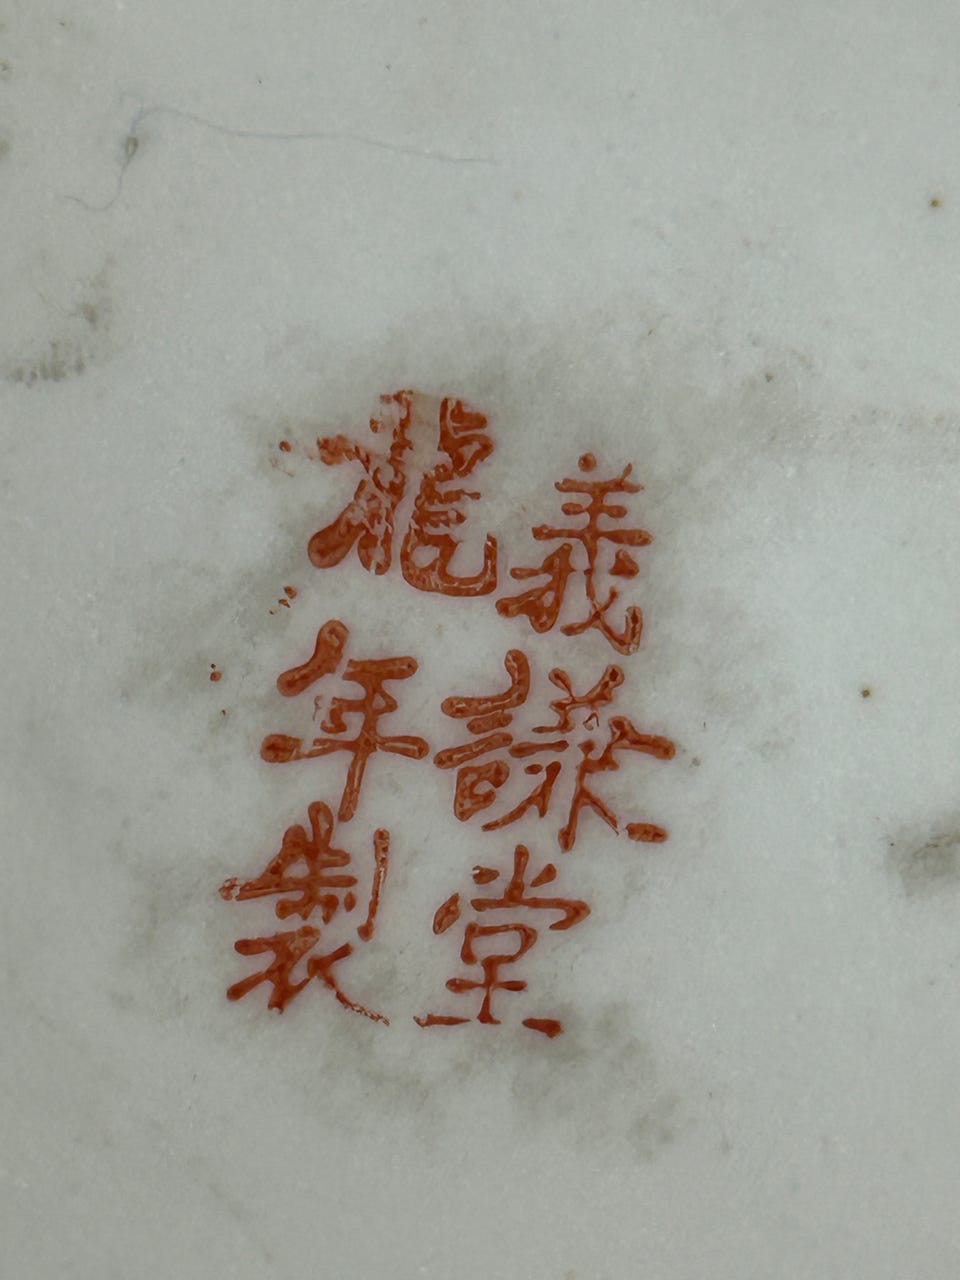 義謙堂
龍年製